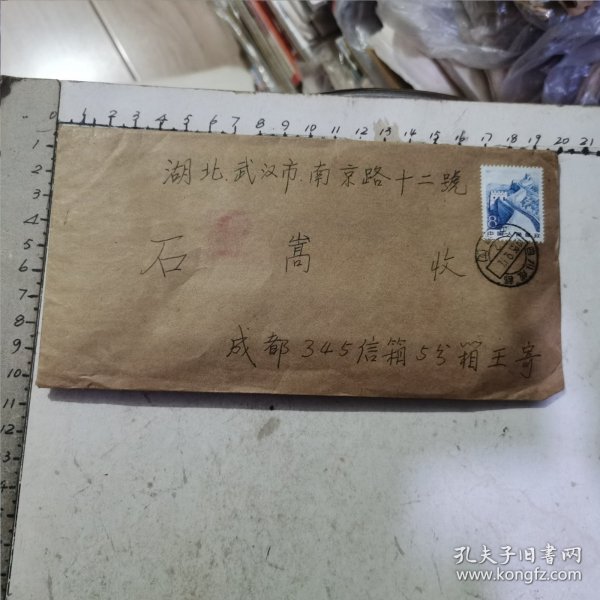 0 1 2 3 4 5 6 7 8 9 10 11 12 13 14 15 16 17 18 19 20 21
1
2
3
4
5
6
7
8
9
10
11
12
13
湖北.武汉市.南京路十二號
8
中国人民邮政
石嵩 收
成都345信箱5号箱王寄
孔夫子旧书网
www.kongfz.com